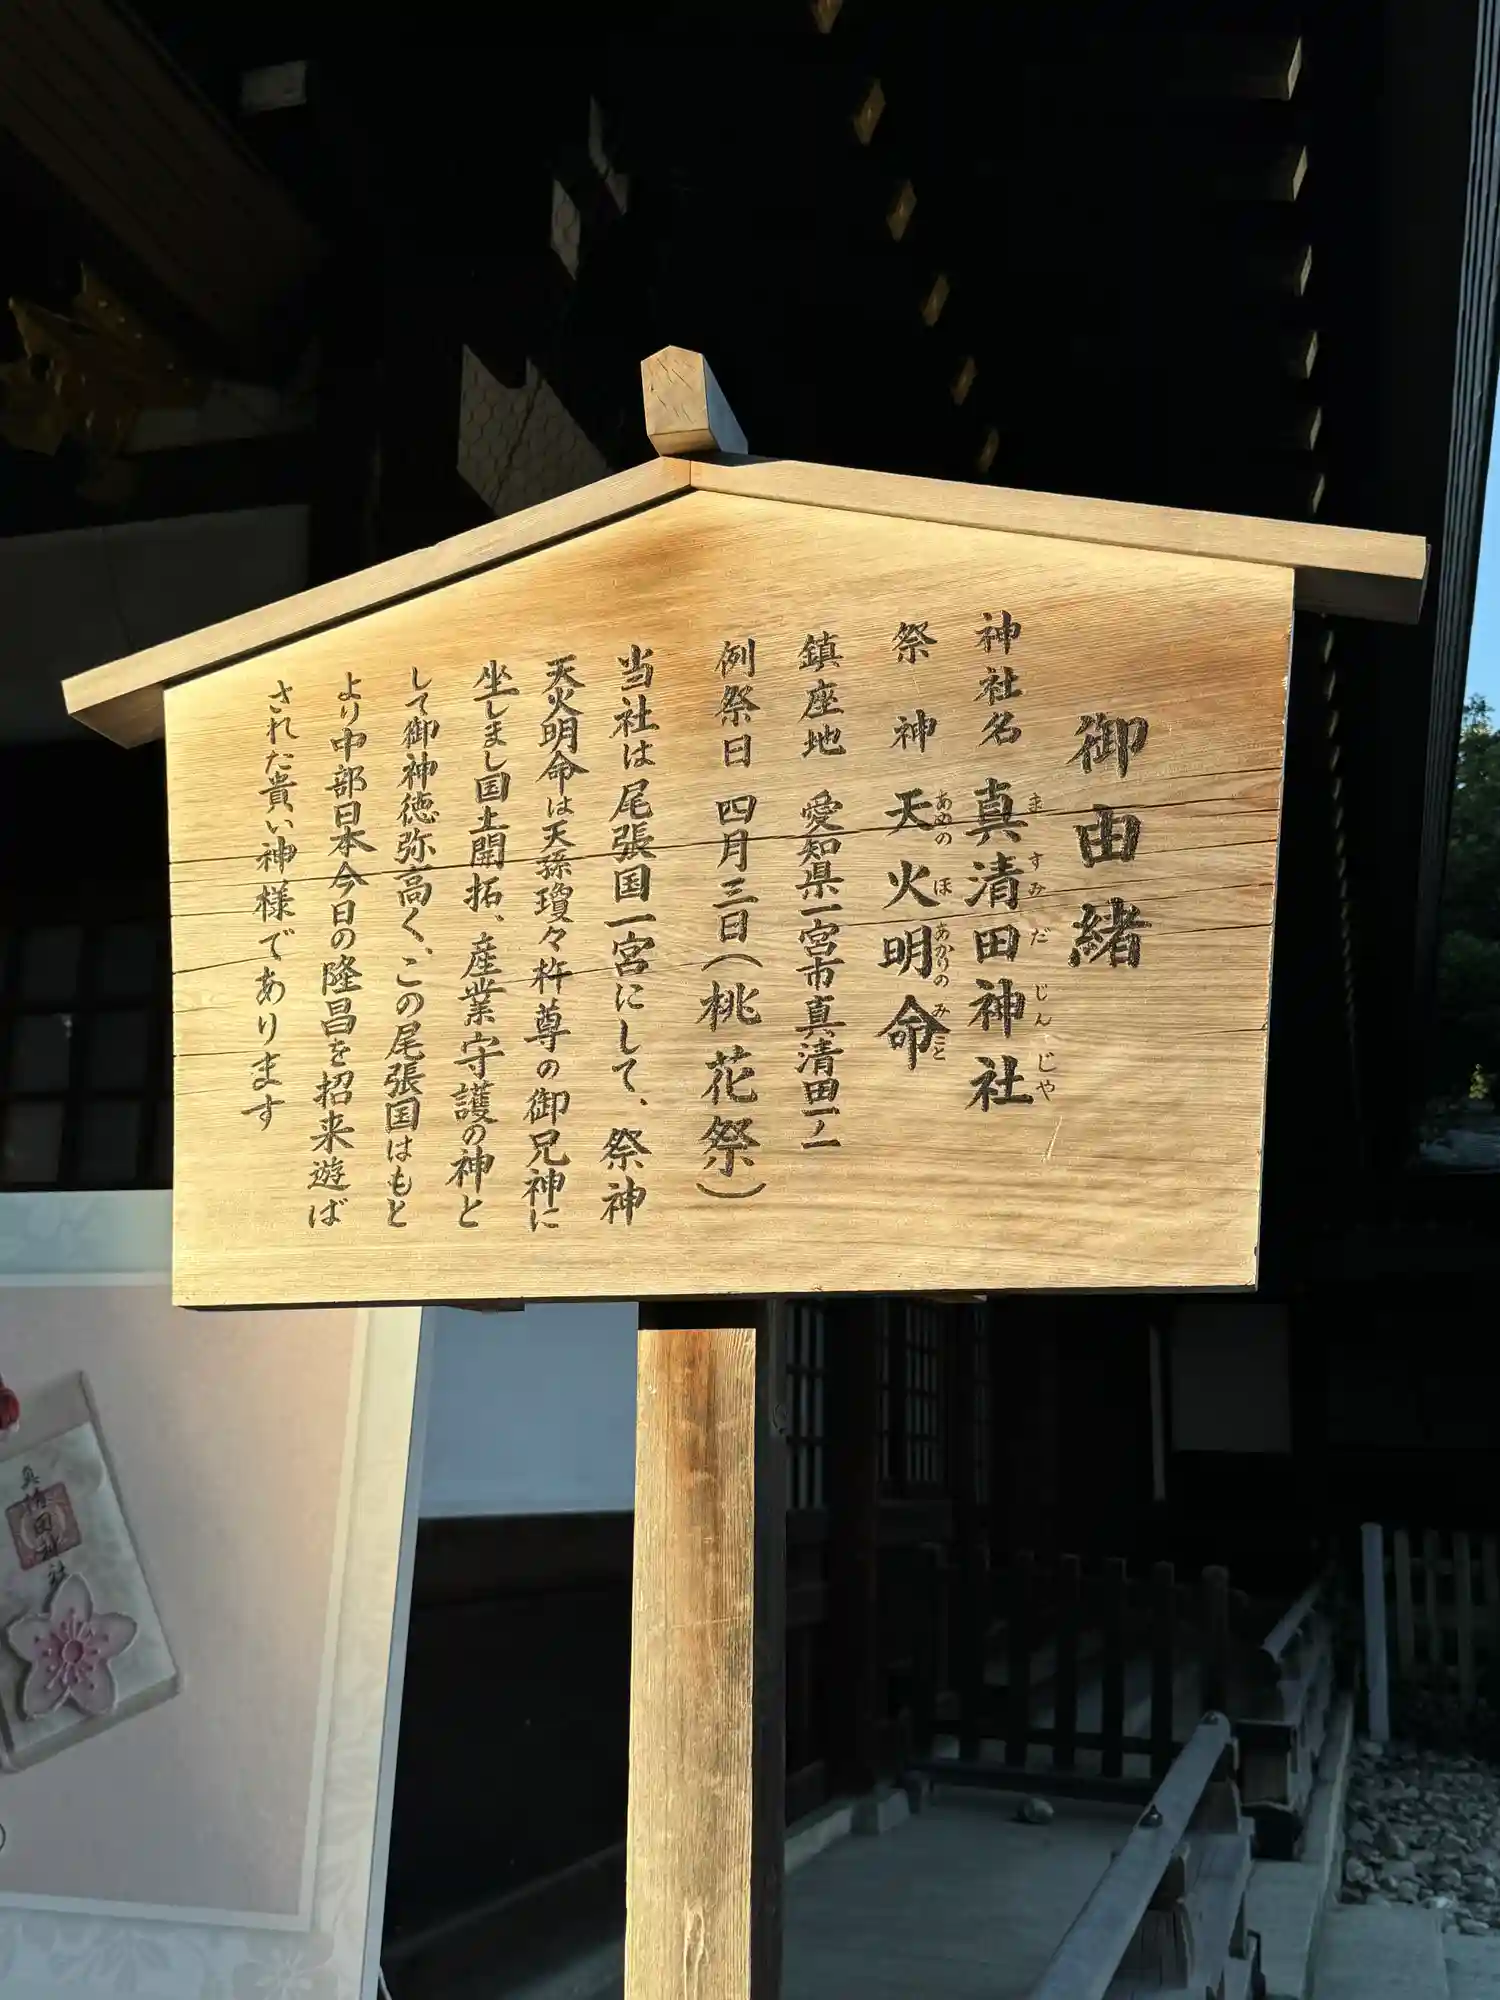 御由緒
神社名 真清田神社
ま すみ だ じん じや
祭神 天火明命
あめの ほ あかりの みこと
鎮座地 愛知県一宮市真清田一ノ一
例祭日 四月三日(桃花祭)
当社は尾張国一宮にして、祭神
天火明命は天孫瓊々杵尊の御兄神に
坐しまし国土開拓、産業守護の神と
して御神徳弥高く、この尾張国はもと
より中部日本今日の隆昌を招来遊ば
された貴い神様であります
真清田神社